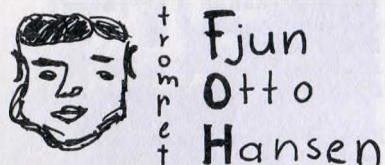 trompet
Fjun
Otto
Hansen